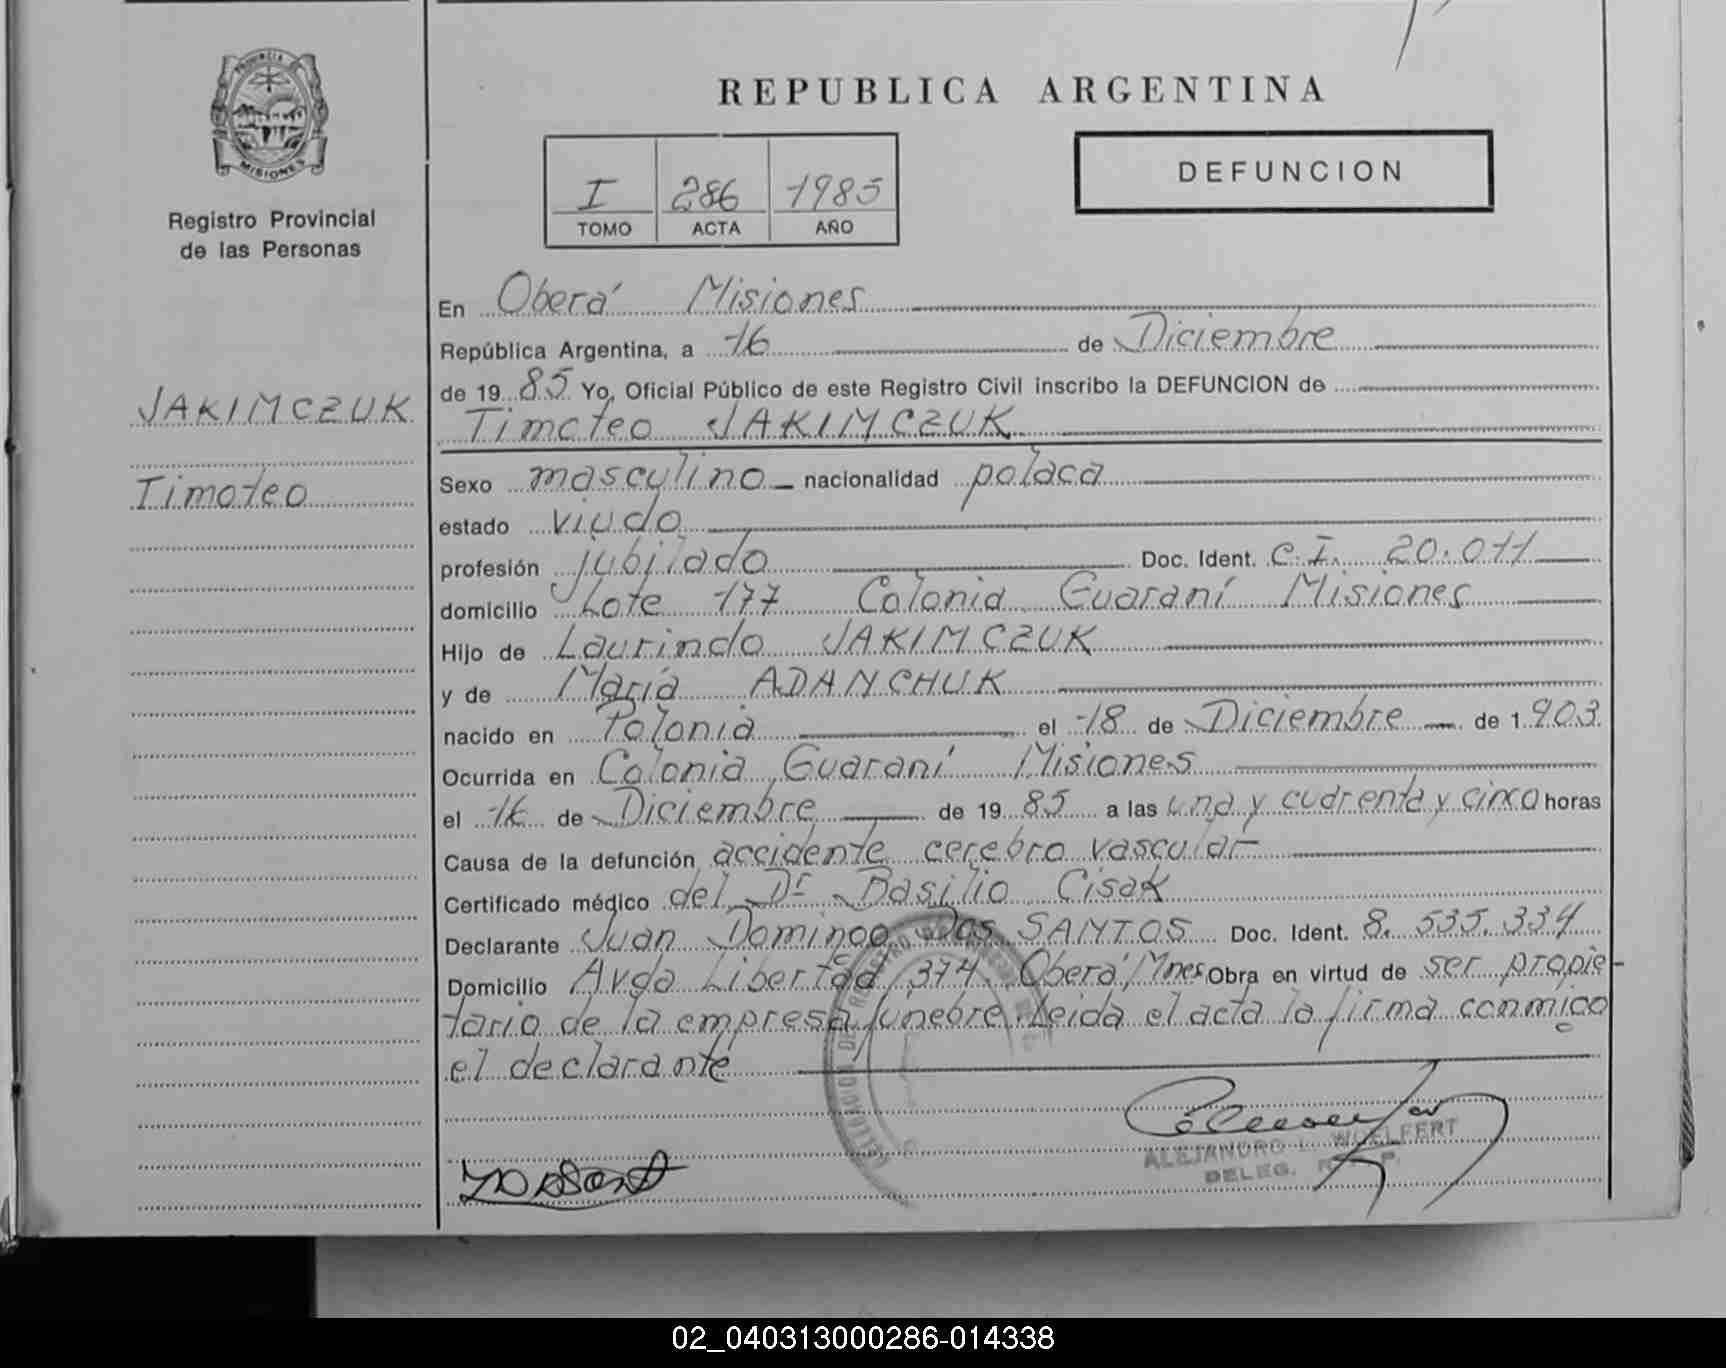 PROVINCIA DE
MISIONES
Registro Provincial
de las Personas
JAKIMCZUK
Timoteo
REPUBLICA ARGENTINA
I 286 1985
TOMO ACTA AÑO
DEFUNCION
En Oberá Misiones
República Argentina, a 16 de Diciembre
de 1985 Yo, Oficial Público de este Registro Civil inscribo la DEFUNCION de
Timoteo JAKIMCZUK
Sexo masculino nacionalidad polaca
estado viudo
profesión jubilado Doc. Ident. C.I. 20.011
domicilio Lote 177 Colonia Guaraní Misiones
Hijo de Laurindo JAKIMCZUK
y de María ADAMCHUK
nacido en Polonia el 18 de Diciembre de 1.903
Ocurrida en Colonia Guaraní Misiones
el 16 de Diciembre de 1985 a las una y cuarenta y cinco horas
Causa de la defunción accidente cerebro vascular
Certificado médico del Dr Basilio Cisak
Declarante Juan Domingo Dos SANTOS Doc. Ident. 8.535.334
Domicilio Avda Libertad 374 Oberá/Mnes Obra en virtud de ser propie-
tario de la empresa fúnebre. Leida el acta la firma conmigo
el declarante
ALEJANDRO L. WOELFERT
DELEG. R. P. P.
02_040313000286-014338